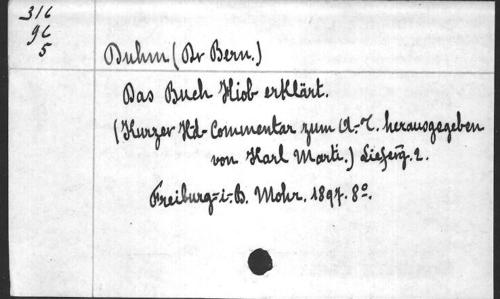 316
96
5
Duhm (Dr Bern.)
Das Buch Hiob erklärt.
(Kurzer Hd-Commentar zum A.-T. herausgegeben
von Karl Marti.) Lieferg. 2.
Freiburg-i-B. Mohr. 1897. 8º.